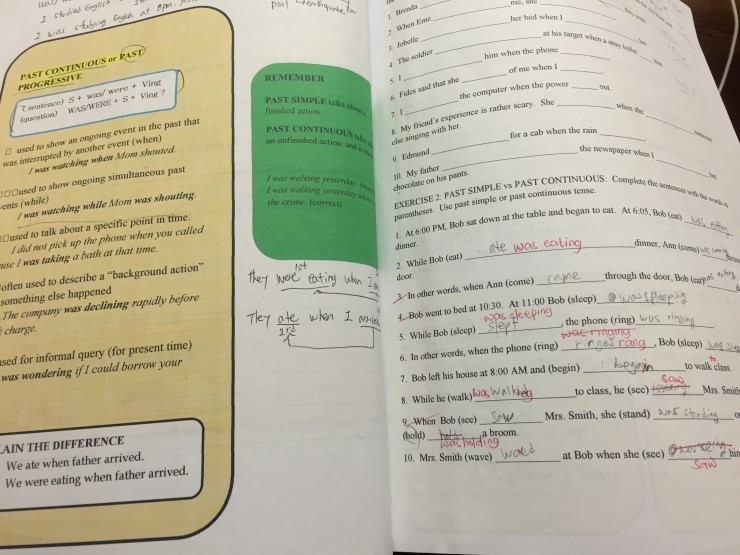 I studied English
I was studying English at 8pm.
PAST CONTINUOUS or PAST
PROGRESSIVE
(sentence) S + was/ were + Ving
(question) WAS/WERE + S + Ving ?
used to show an ongoing event in the past that
was interrupted by another event (when)
I was watching when Mom shouted.
used to show ongoing simultaneous past
(while)
I was watching while Mom was shouting.
used to talk about a specific point in time.
I did not pick up the phone when you called
I was taking a bath at that time.
often used to describe a “background action”
something else happened
The company was declining rapidly before
charge.
used for informal query (for present time)
was wondering if I could borrow your
AIN THE DIFFERENCE
We ate when father arrived.
We were eating when father arrived.
past
REMEMBER
PAST SIMPLE talks about
finished action.
PAST CONTINUOUS
an unfinished action and
I was walking yesterday
I was walking yesterday
the crime. (correct)
1st
They were eating when I
They ate when I arrived
2nd
1. Brenda
2. When Emz her bed when I
3. Jobelle
4. The soldier at his target when a stray bullet
5. I him when the phone
6. Fides said that she of me when I
7. I the computer when the power out.
8. My friend's experience is rather scary. She when she
else singing with her.
9. Edmund for a cab when the rain
10. My father the newspaper when I
chocolate on his pants.
EXERCISE 2: PAST SIMPLE vs PAST CONTINUOUS: Complete the sentences with the words in
parentheses. Use past simple or past continuous tense.
1. At 6:00 PM, Bob sat down at the table and began to eat. At 6:05, Bob (eat)
dinner.
2. While Bob (eat) ate was eating dinner, Ann (come)
door.
3. In other words, when Ann (come) came through the door, Bob (eat)
4. Bob went to bed at 10:30. At 11:00 Bob (sleep) was sleeping
was sleeping
5. While Bob (sleep) slept, the phone (ring) was ringing
was ringing
6. In other words, when the phone (ring) ringed rang, Bob (sleep)
7. Bob left his house at 8:00 AM and (begin) began to walk to class.
8. While he (walk) was walking to class, he (see) saw Mrs. Smith
9. When Bob (see) saw Mrs. Smith, she (stand) was standing
(hold) held a broom.
was holding
10. Mrs. Smith (wave) waved at Bob when she (see) him
saw